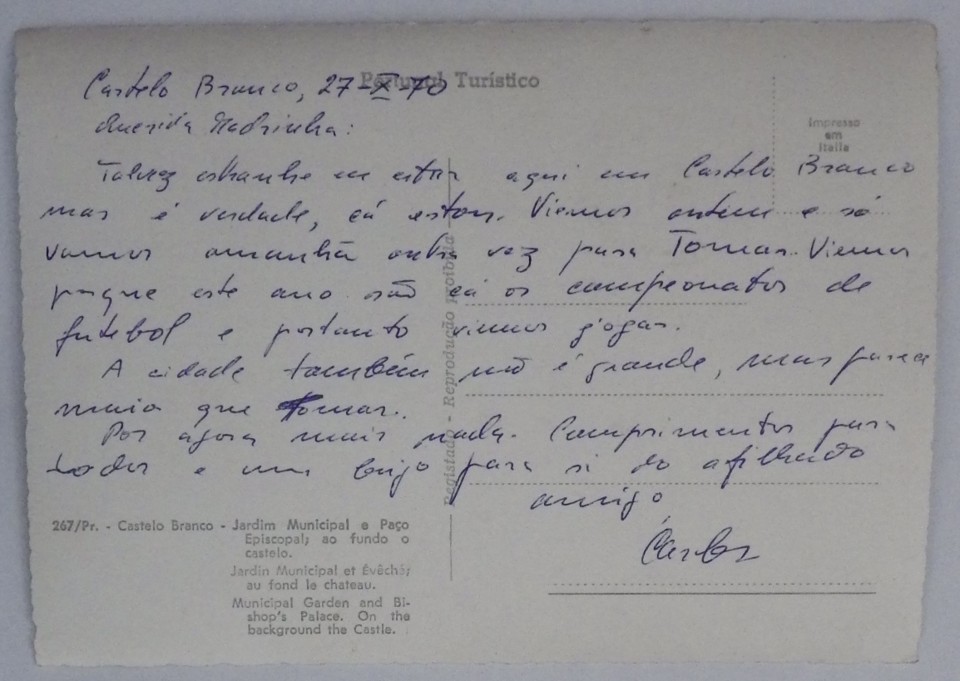 Portugal Turístico
Impresso
em
Italia
Castelo Branco, 27-X-70
Querida Madrinha:
Talvez estranhe eu estar aqui em Castelo Branco
mas é verdade, cá estou. Viemos ontem e só
vamos amanhã outra vez para Tomar. Viemos
porque este ano são cá os campeonatos de
futebol e portanto viemos jogar.
A cidade também não é grande, mas parece
maior que Tomar.
Por agora mais nada. Comprimentos para
todos e um beijo para si do afilhado
amigo
Carlos
Registado - Reprodução proibida
267/Pr. - Castelo Branco - Jardim Municipal e Paço
Episcopal; ao fundo o
castelo.
Jardin Municipal et Évêché;
au fond le chateau.
Municipal Garden and Bi-
shop's Palace. On the
background the Castle.